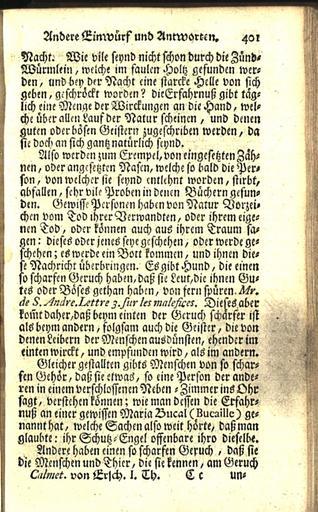 Andere Einwürf und Antworten. 401
Nacht. Wie vile seynd nicht schon durch die Zünd-
Würmlein, welche im faulen Holtz gefunden wer-
den, und bey der Nacht eine starcke Helle von sich
geben, geschröckt worden? die Erfahrnuß gibt täg-
lich eine Menge der Wirckungen an die Hand, wel-
che über allen Lauf der Natur scheinen, und denen
guten oder bösen Geistern zugeschrieben werden, da
sie doch an sich gantz natürlich seynd.
Also werden zum Exempel, von eingesetzten Zäh-
nen, oder angesetzten Nasen, welche so bald die Per-
son, von welcher sie seynd entlehnt worden, stirbt,
abfallen, sehr vile Proben in denen Büchern gefun-
den. Gewisse Personen haben von Natur Vorzei-
chen vom Tod ihrer Verwandten, oder ihrem eige-
nen Tod, oder können auch aus ihrem Traum sa-
gen: dieses oder jenes seye geschehen, oder werde ge-
schehen; es werde ein Bott kommen, und ihnen die-
se Nachricht überbringen. Es gibt Hund, die einen
so scharfen Geruch haben, daß sie Leut, die ihnen Gu-
tes oder Böses gethan haben, von fern spüren. Mr.
de S. Andre. Lettre 3. sur les malefices. Dieses aber
kom̃t daher, daß beym einten der Geruch schärfer ist
als beym andern, folgsam auch die Geister, die von
denen Leibern der Menschen ausdünsten, ehender im
einten wirckt, und empfunden wird, als im andern.
Gleicher gestalten gibts Menschen von so schar-
fen Gehör, daß sie etwas, so eine Person der ande-
ren in einem verschlossenen Neben-Zimmer ins Ohr
sagt, verstehen können: wie man dessen die Erfahr-
nuß an einer gewissen Maria Bucal (Bucaille) ge-
nannt hat, welche Sachen also weit hörte, daß man
glaubte: ihr Schutz-Engel offenbare ihro dieselbe.
Andere haben einen so scharfen Geruch, daß sie
die Menschen und Thier, die sie kennen, am Geruch
Calmet. von Ersch. I. Th. C c un-